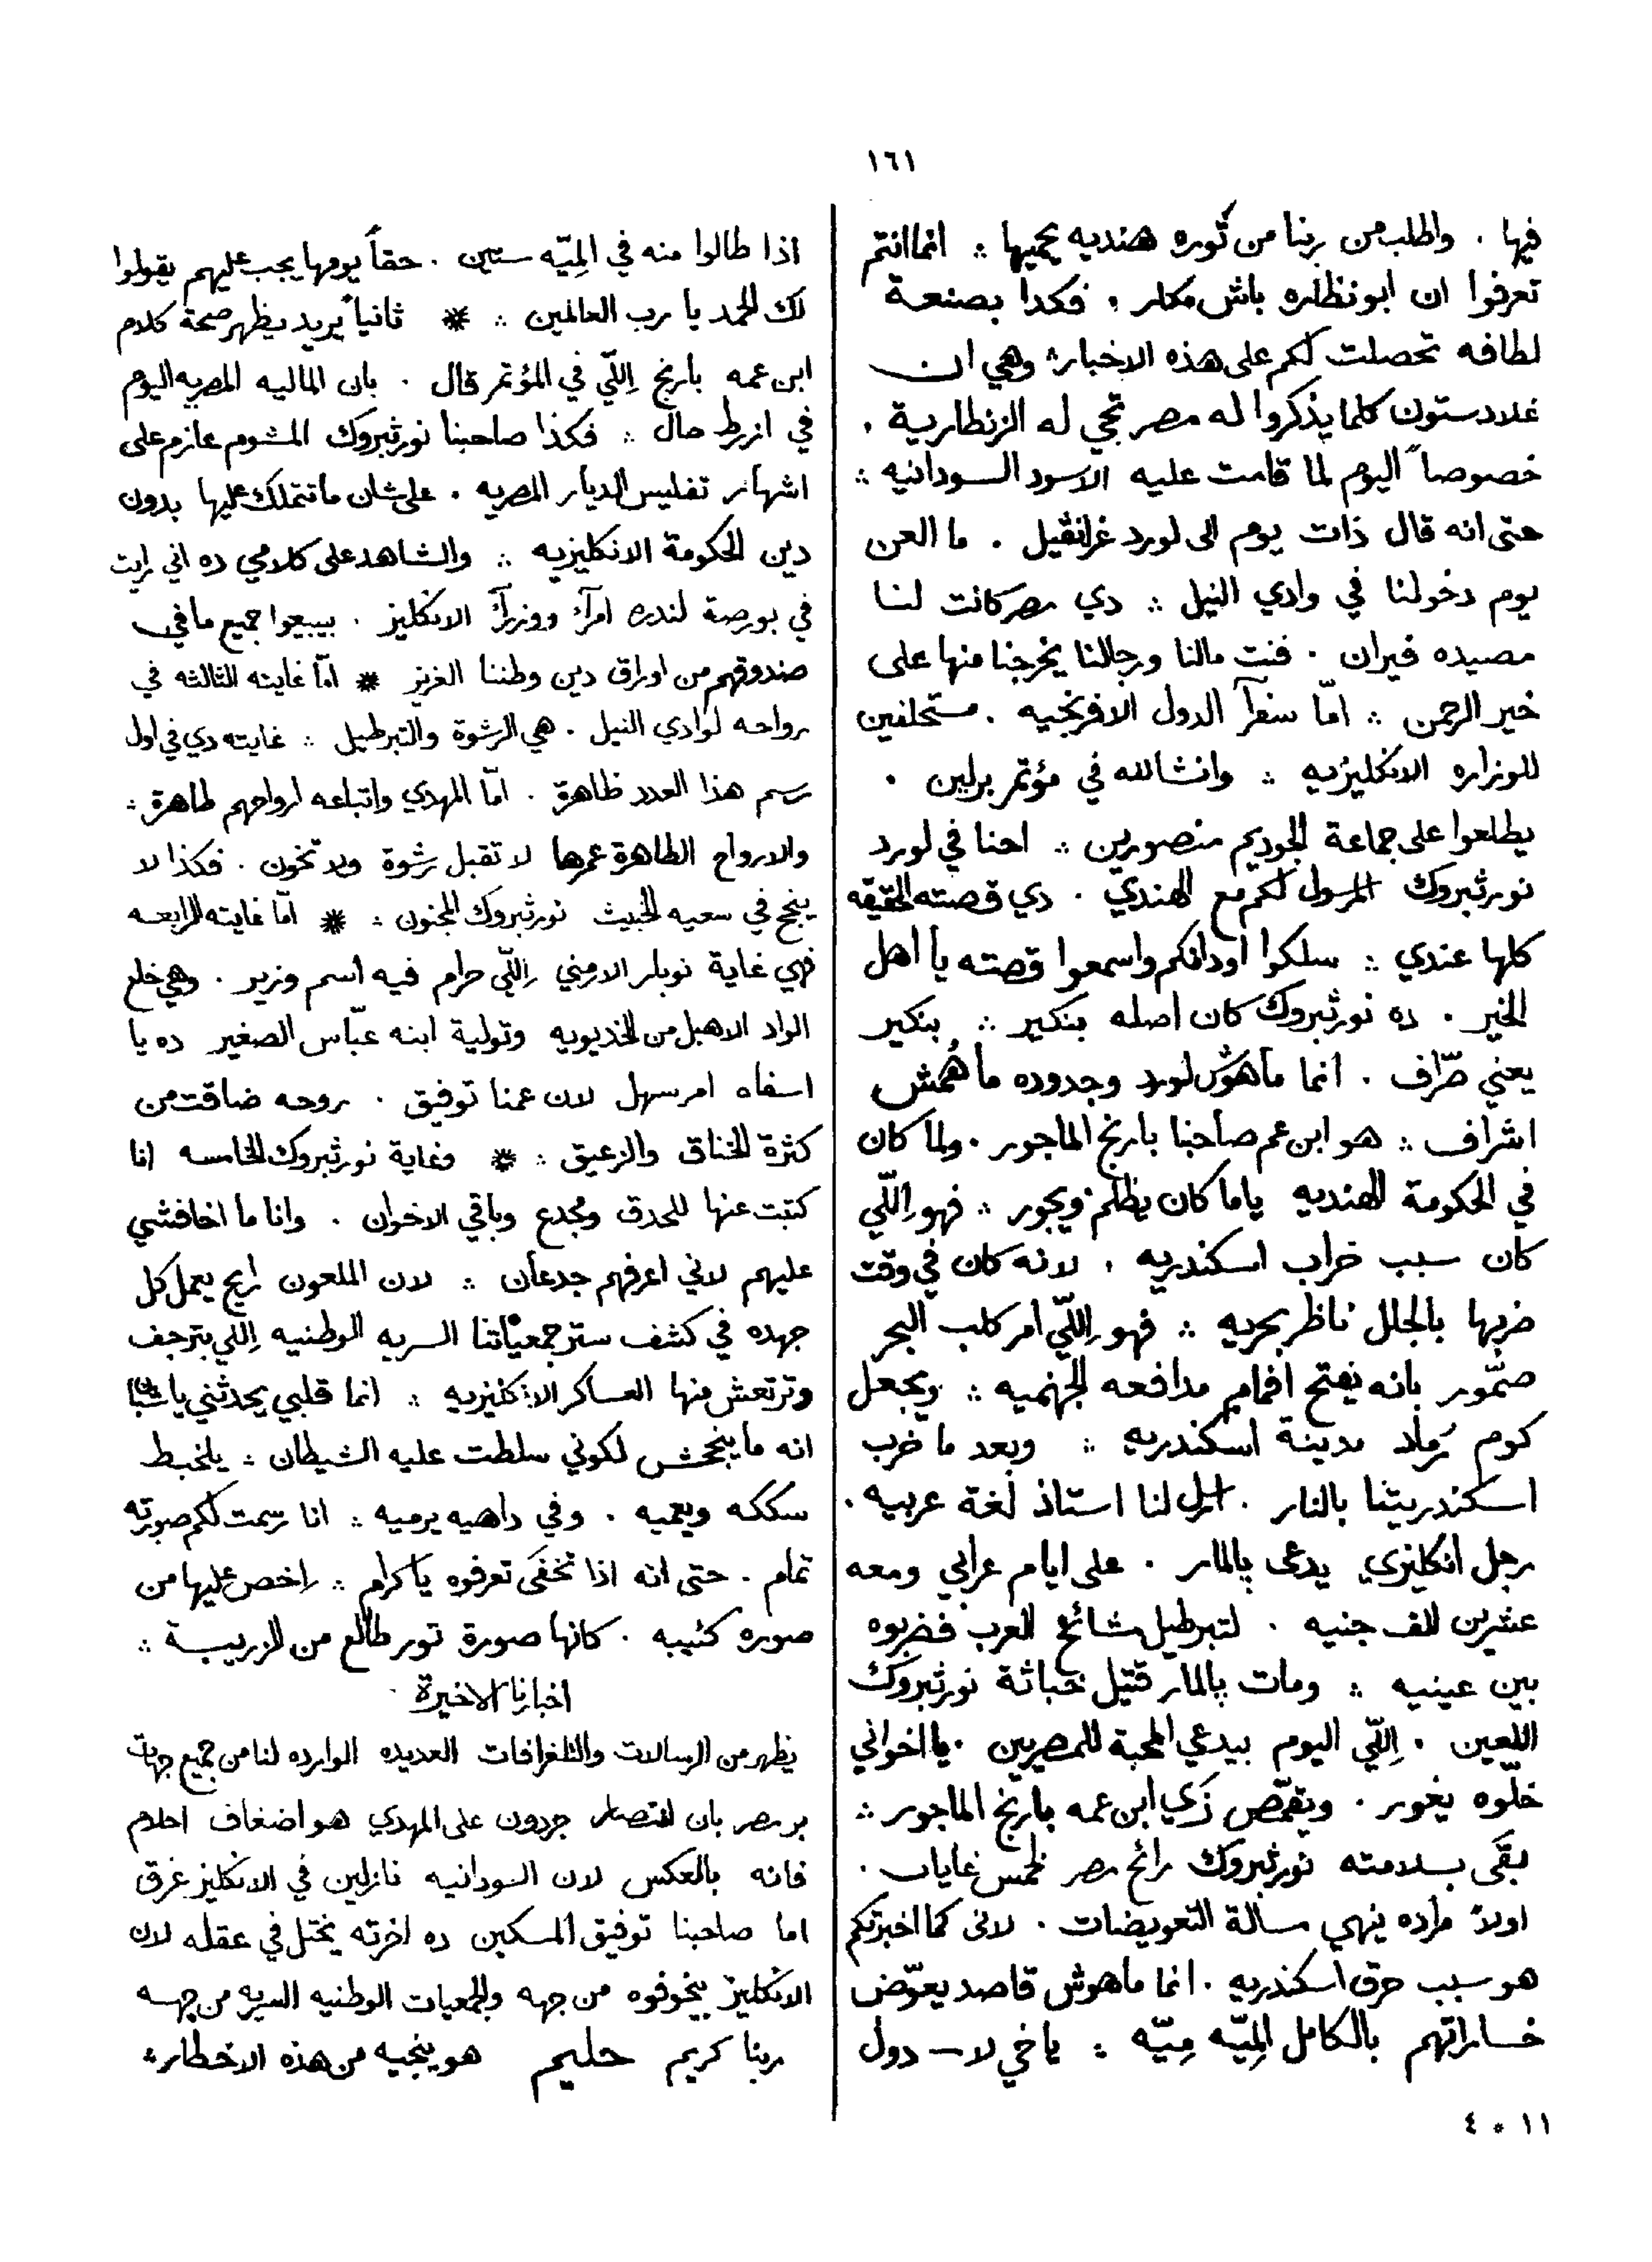 ١٦١
فيها . واطلب من ربنا من ثوره هنديه يحميها ∴ انما انتم
تعرفوا ان ابو نظاره باش مكار . فكدا بصنعة
لطافه تحصلت لكم على هذه الاخبار ∴ وهي ان
غلادستون كلما يذكروا له مصر تجي له الزنطارية .
خصوصاً اليوم لما قامت عليه الاسود السودانيه ∴
حتى انه قال ذات يوم الى لورد غرانڤيل . ما العن
يوم دخولنا في وادي النيل ∴ دي مصر كانت لنا
مصيده فيران . فنت مالنا ورجالنا يخرجنا منها على
خير الرحمن ∴ امّا سفرآ الدول الافرنجيه . مستحلفين
للوزاره الانكليزيه ∴ وانشالله في مؤتمر برلين .
يطلعوا على جماعة الجوديم منصورين ∴ احنا في لورد
نورثبروك المرسول لكم مع الهنديّ . دي قصته الحقيقه
كلها عندي ∴ سلكوا اودانكم واسمعوا قصته يا اهل
الخير . ده نورثبروك كان اصله بنكير ∴ بنكير
يعني صرّاف . انما ماهوش لورد وجدوده ما هُمش
اشراف ∴ هو ابن عم صاحبنا بارنج الماجور . ولما كان
في الحكومة الهنديه ياما كان يظلم ويجور ∴ فهو اِللّي
كان سبب خراب اسكندريه . لانه كان في وقت
ضربها بالجلل ناظر بحريه ∴ فهو اِللّي امر كلب البحر
صمّور بانه يفتح افمام مدافعه الجهنميه ∴ ويجعل
كوم رماد مدينة اسكندريه ∴ وبعد ما خرب
اسكندريتنا بالنار . ارسل لنا استاذ لغة عربيه .
رجل انكليزي يدعى پالمار . على ايام عرابي ومعه
عشرين الف جنيه . لتبرطيل مشائخ العرب فضربوه
بين عينيه ∴ ومات پالمار قتيل خباثة نورثبروك
اللعين . اِللّي اليوم بيدعي المحبة للمصريين . يا اخواني
خلّوه يغور . ويتقمّص زي ابن عمه بارنج الماجور ∴
بقى بسلامته نورثبروك رائح مصر لخمس غايات .
اولاً مراده ينهي مسالة التعويضات . لانى كما اخبرتكم
هو سبب حرق اسكندريه . انما ماهوش قاصد يعوّض
خساراتهم بالكامل المِيّه مِيّه ∴ ياخي لا — دول
١١ * ٤
اذا طالوا منه في المِيّه ستين . حقاً يومها يجب عليهم يقولوا
لك الحمد يا رب العالمين ∴ * ثانياً يريد يظهر صحة كلام
ابن عمه بارنج اِللّي في المؤتمر قال . بان الماليه المصريه اليوم
في ازرط حال ∴ فكذا صاحبنا نورثبروك المشوم عازم على
اشهار تفليس الديار المصريه . على شان ما تتملك عليها بدون
دين الحكومة الانكليزيه ∴ والشاهد على كلامي ده اني رايت
في بورصة لندره امرآ ووزرآ الانكليز . بيبيعوا جميع ما في
صندوقهم من اوراق دين وطننا العزيز * امّا غايته الثالثه في
رواحه لوادي النيل . هي الرشوة والتبرطيل ∴ غايته دي في اول
رسم هذا العدد ظاهرة . امّا المهدي واتباعه ارواحهم طاهرة ∴
والارواح الطاهرة عمرها لا تقبل رشوة ولا تخون . فكذا لا
ينجح في سعيه الخبيث نورثبروك المجنون ∴ * امّا غايته الرابعه
فهي غاية نوبار الارمني اِللّي حرام فيه اسم وزير . وهي خلع
الواد الاهبل من الخديويه وتولية ابنه عبّاس الصغير ده يا
اسفاه امر سهل لان عمنا توفيق . روحه ضاقت من
كثرة الخناق والزعيق ∴ * وغاية نورثبروك الخامسه انا
كتبت عنها للحدق ومجدع وباقي الاخوان . وانا ما اخافشي
عليهم لاني اعرفهم جدعان ∴ لان الملعون رايح يعمل كل
جهده في كشف ستر جمعياتنا السريه الوطنيه اِللّي بترجف
وترتعش منها العساكر الانكليزيه ∴ انما قلبي يحدثني يا شبان
انه ما ينجحش لكوني سلطت عليه الشيطان ∴ يلخبط
سككه ويعميه . وفي داهيه يرميه ∴ انا رسمت لكم صورته
تمام . حتى انه اذا تخفى تعرفوه يا كرام ∴ اخص عليها من
صوره كئيبه . كانها صورة تور طالع من الزريبة ∴
اخبارنا الاخيرة
يظهر من الرسالات والتلغرافات العديده الوارده لنا من جميع جهات
بر مصر بان انتصار جردون على المهدي هو اضغاف احلام
فانه بالعكس لان السودانيه نازلين في الانكليز غرق
اما صاحبنا توفيق المسكين ده اخرته يختل في عقله لان
الانكليز بيخوفوه من جهه والجمعيات الوطنيه السريه من جهه
ربنا كريم حليم هو ينجيه من هذه الاخطار ∴